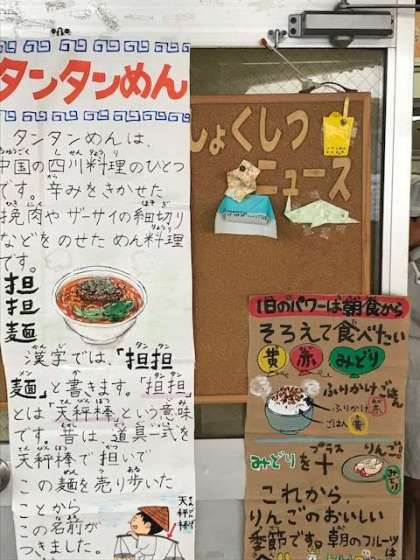 タンタンめん
タンタンめんは、
中国の四川料理のひとつ
です。辛みをきかせた
挽肉やザーサイの細切り
などをのせためん料理
です。
担
担
麺
漢字では、「担担
麺」と書きます。「担担」
とは「天秤棒」という意味
です。昔は、道具一式を
天秤棒で担いで
この麺を売り歩いた
ことから
この名前が
つきました。
天秤棒
しょくしつ
ニュース
1日のパワーは朝食から
そろえて食べたい
黄 赤 みどり
ふりかけごはん
ふりかけ 赤
ごはん 黄
みどりを
プラス
+
りんご!
みどり
これから、
りんごのおいしい
季節です。朝のフルーツ